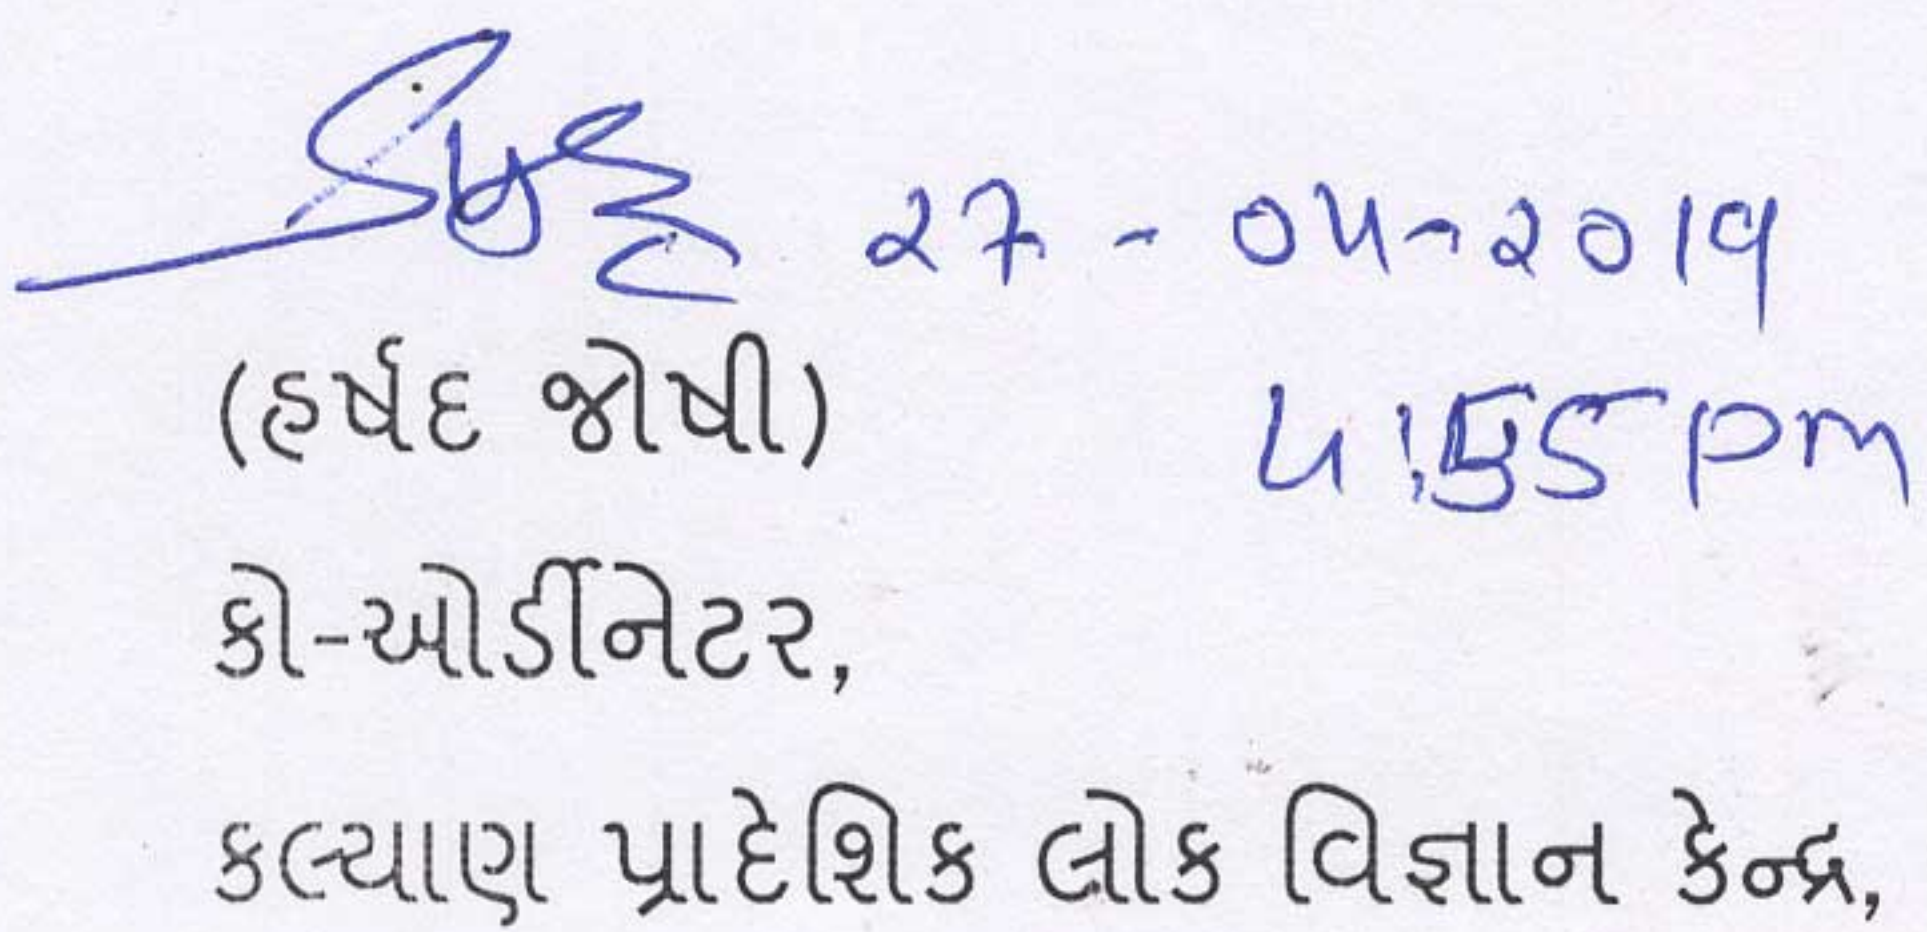 ૨7-0૫-૨019
(હર્ષદ જોષી)
૫:55 pm
કો-ઓર્ડીનેટર,
કલ્યાણ પ્રાદેશિક લોક વિજ્ઞાન કેન્દ્ર,